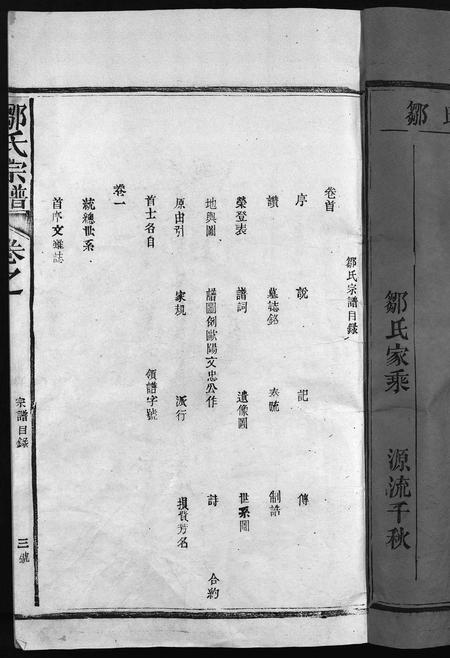 鄒氏
鄒氏家乘 源流千秋
鄒氏宗譜目錄
卷首
序 說 記 傳
讚 墓誌銘 奏疏 制誥
榮登表 譜詞 遺像圖 世系圖
地與圖 譜圖例歐陽文忠公作 詩 合約
原由引 家規 派行 損貲芳名
首士名目 領譜字號
卷一
統總世系
首序文
鄒氏宗譜 卷之一 宗譜目錄 三號